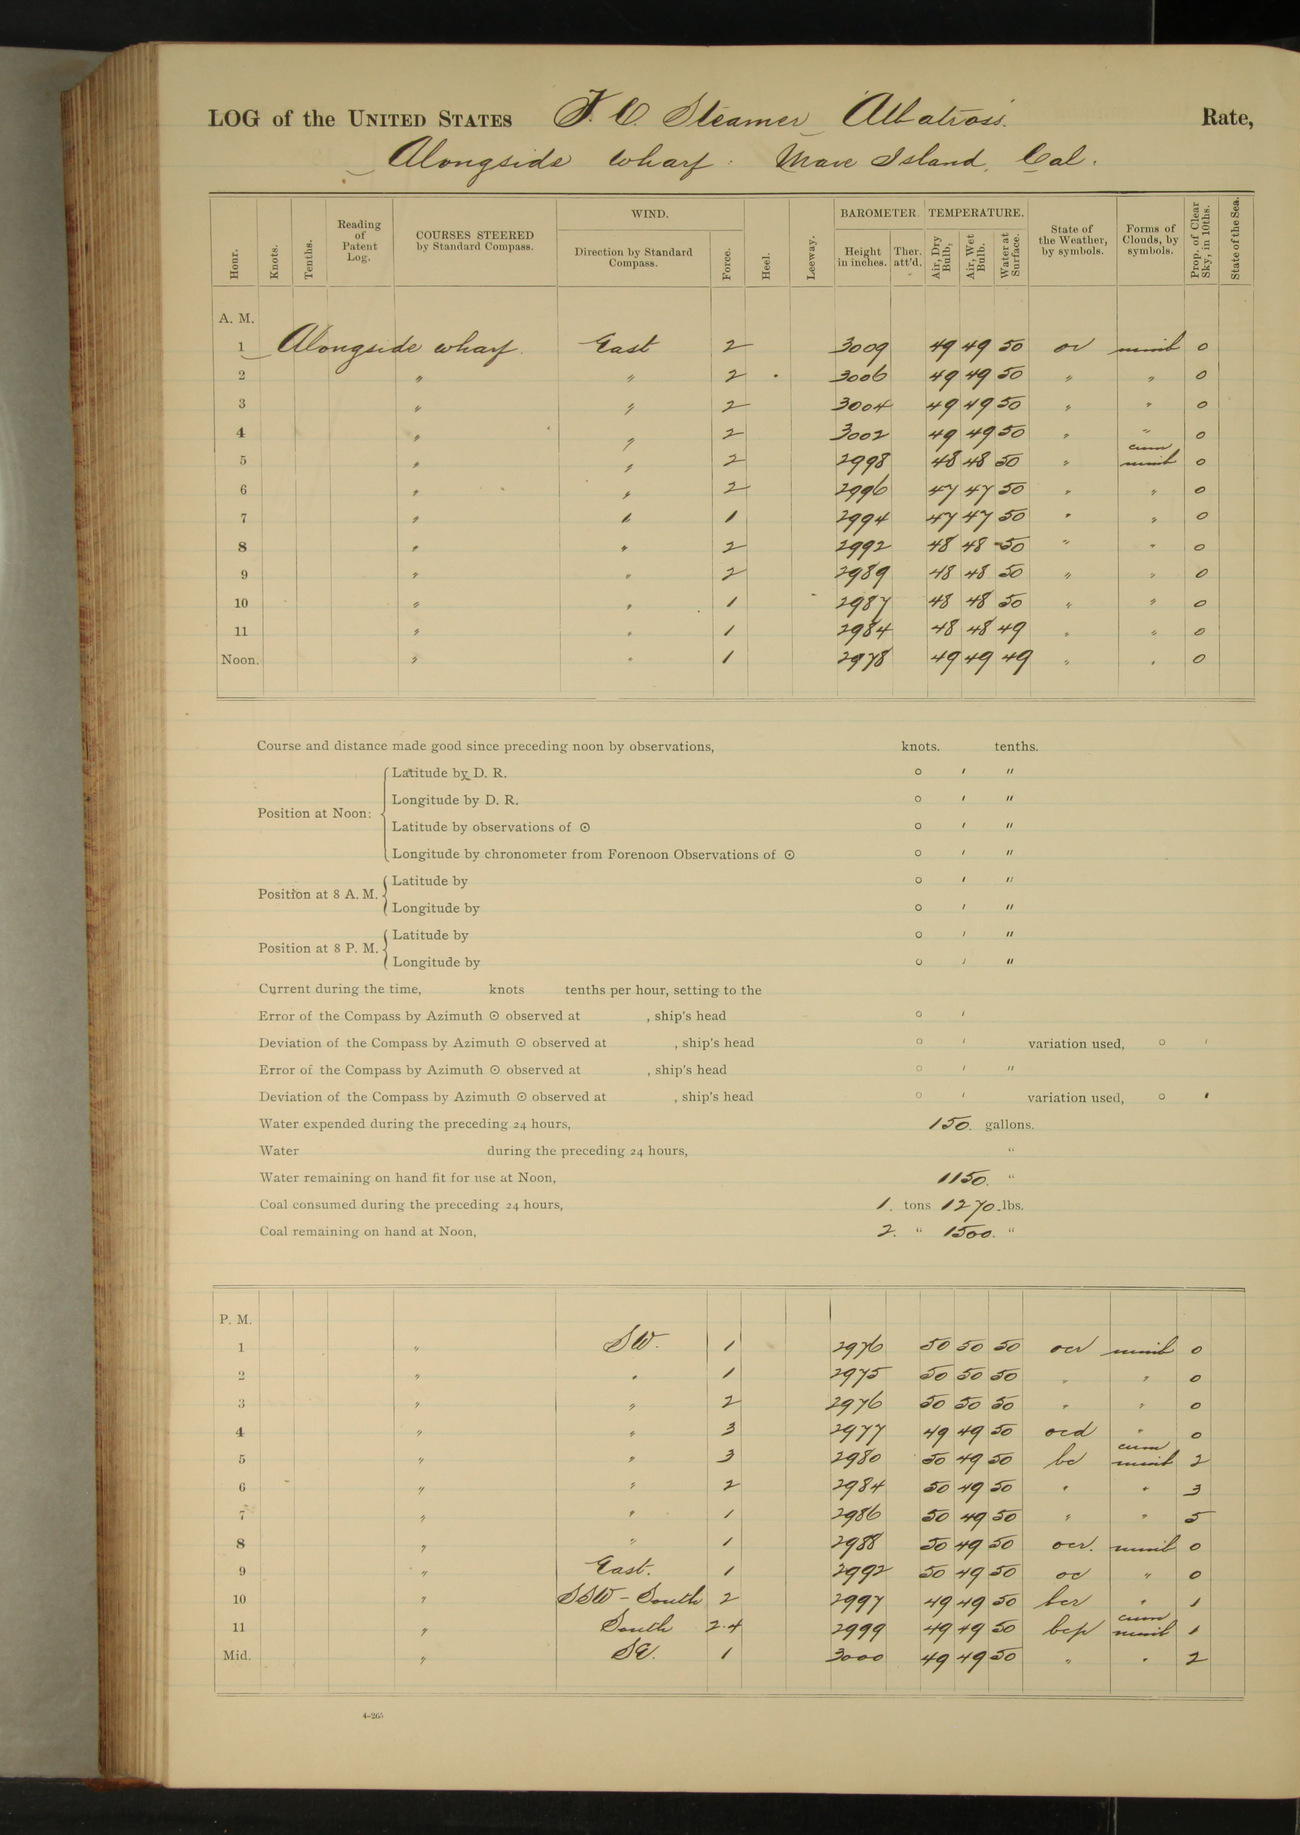 LOG of the UNITED STATES F. C. Steamer Albatross. Rate,
Alongside wharf. Mare Island, Cal.
Hour. Knots. Tenths. Reading of Patent Log. COURSES STEERED by Standard Compass. WIND. Direction by Standard Compass. Force. Heel. Leeway. BAROMETER. Height in inches. Ther. att'd. TEMPERATURE. Air, Dry Bulb. Air, Wet Bulb. Water at Surface. State of the Weather, by symbols. Forms of Clouds, by symbols. Prop. of Clear Sky, in 10ths. State of the Sea.
A. M.
1 Alongside wharf. East 2 3009 49 49 50 oc nimb 0
2 " " 2 3006 49 49 50 " " 0
3 " " 2 3004 49 49 50 " " 0
4 " " 2 3002 49 49 50 " " 0
5 " " 2 2998 48 48 50 " cum nimb 0
6 " " 2 2996 47 47 50 " " 0
7 " " 1 2994 47 47 50 " " 0
8 " " 2 2992 48 48 50 " " 0
9 " " 2 2989 48 48 50 " " 0
10 " " 1 2987 48 48 50 " " 0
11 " " 1 2984 48 48 49 " " 0
Noon. " " 1 2978 49 49 49 " " 0
Course and distance made good since preceding noon by observations, knots. tenths.
Position at Noon: Latitude by D. R. ° ′ ″
Longitude by D. R. ° ′ ″
Latitude by observations of ☉ ° ′ ″
Longitude by chronometer from Forenoon Observations of ☉ ° ′ ″
Position at 8 A. M. Latitude by ° ′ ″
Longitude by ° ′ ″
Position at 8 P. M. Latitude by ° ′ ″
Longitude by ° ′ ″
Current during the time, knots tenths per hour, setting to the
Error of the Compass by Azimuth ☉ observed at , ship's head ° ′
Deviation of the Compass by Azimuth ☉ observed at , ship's head ° ′ variation used, ° ′
Error of the Compass by Azimuth ☉ observed at , ship's head ° ′ ″
Deviation of the Compass by Azimuth ☉ observed at , ship's head ° ′ variation used, ° ′
Water expended during the preceding 24 hours, 150. gallons.
Water during the preceding 24 hours, "
Water remaining on hand fit for use at Noon, 1150. "
Coal consumed during the preceding 24 hours, 1. tons 1270. lbs.
Coal remaining on hand at Noon, 2. " 1500. "
P. M.
1 " SW. 1 2976 50 50 50 ocr nimb 0
2 " " 1 2975 50 50 50 " " 0
3 " " 2 2976 50 50 50 " " 0
4 " " 3 2977 49 49 50 ocd " 0
5 " " 3 2980 50 49 50 bc cum nimb 2
6 " " 2 2984 50 49 50 " " 3
7 " " 1 2986 50 49 50 " " 5
8 " " 1 2988 50 49 50 ocr. nimb 0
9 " East. 1 2992 50 49 50 oc " 0
10 " SSW - South 2 2997 49 49 50 bcr " 1
11 " South 2.4 2999 49 49 50 bcp cum nimb 1
Mid. " SE. 1 3000 49 49 50 " " 2
4-265